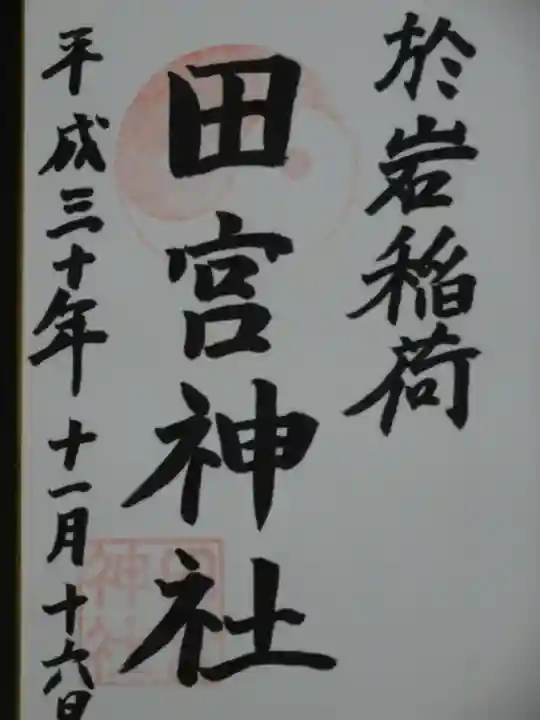 於岩稲荷
田宮神社
平成三十年十一月十六日